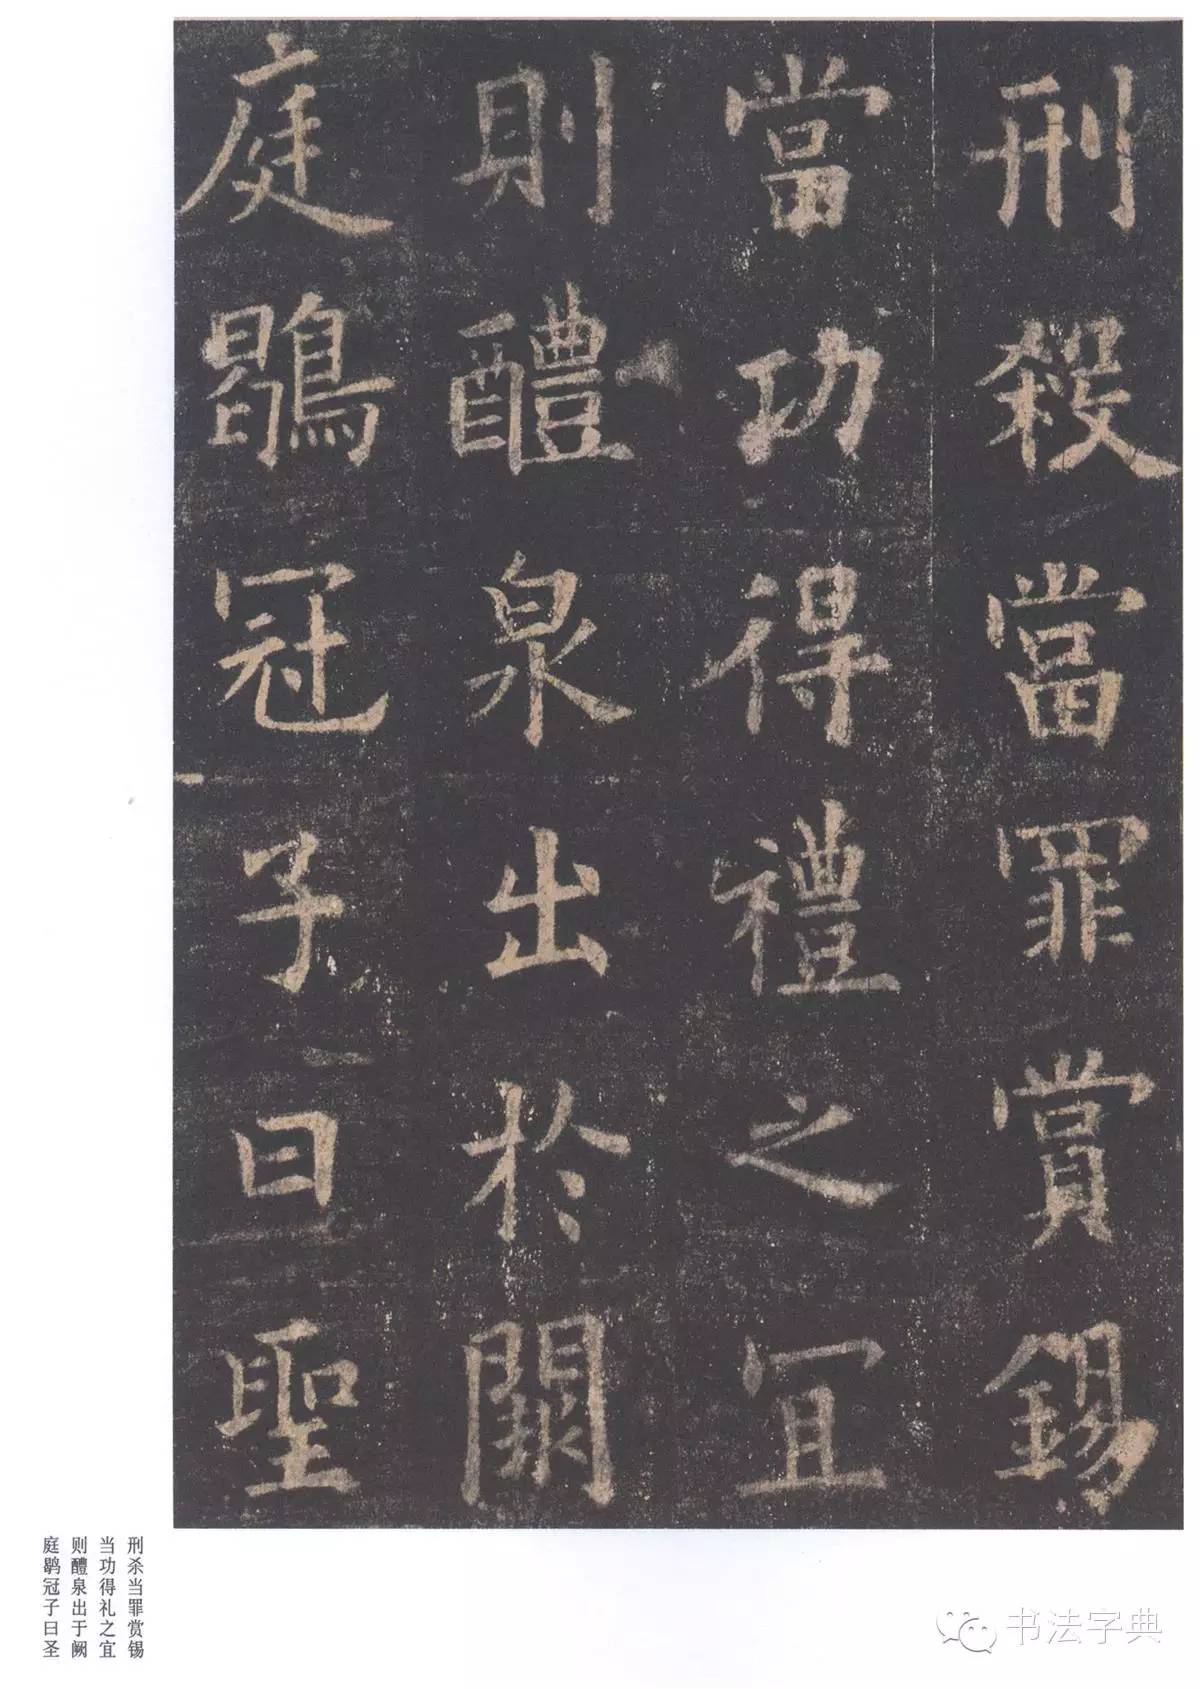 刑殺當罪賞錫
當功得禮之宜
則醴泉出於闕
庭鶡冠子曰聖
刑杀当罪赏锡
当功得礼之宜
则醴泉出于阙
庭鹖冠子曰圣
书法字典